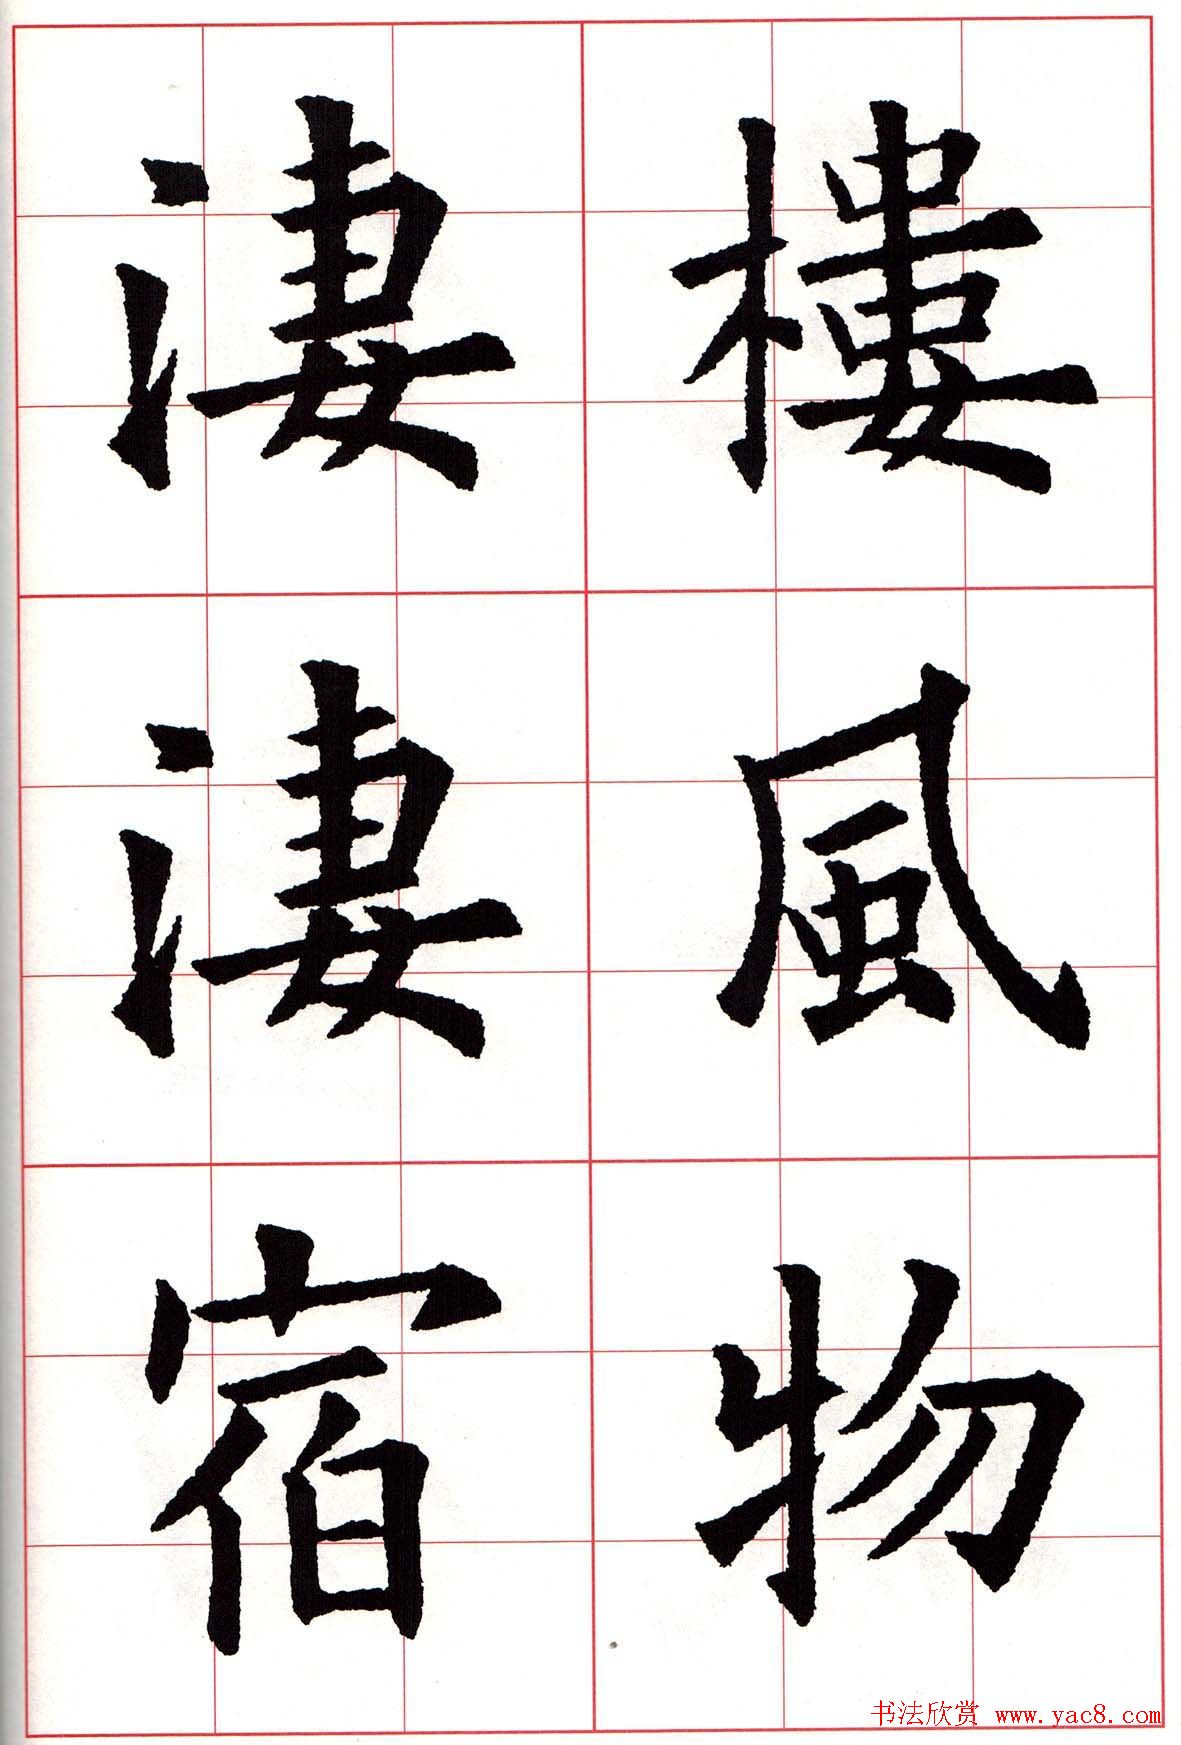 樓風物
淒淒宿
书法欣赏 www.yac8.com